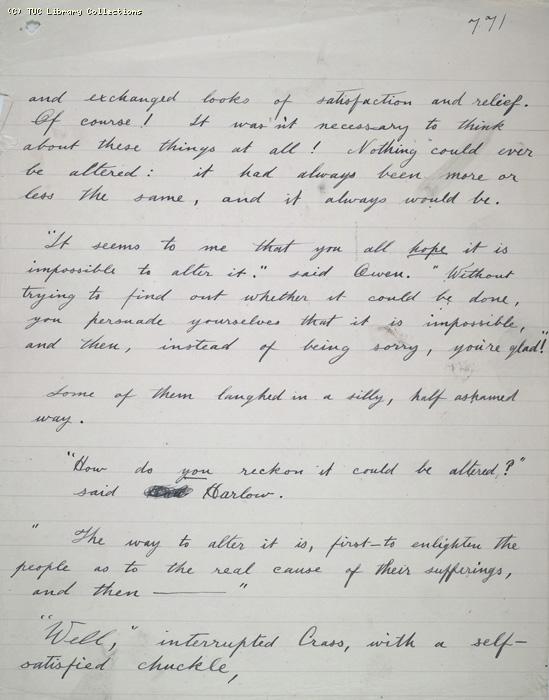 (C) TUC Library Collections
771
and exchanged looks of satisfaction and relief.
Of course! It was'nt necessary to think
about these things at all! Nothing could ever
be altered: it had always been more or
less the same, and it always would be.
"It seems to me that you all hope it is
impossible to alter it." said Owen. "Without
trying to find out whether it could be done,
you persuade yourselves that it is impossible,
and then, instead of being sorry, you're glad!"
Some of them laughed in a silly, half ashamed
way.
"How do you reckon it could be altered?"
said Harlow.
"The way to alter it is, first—to enlighten the
people as to the real cause of their sufferings,
and then ——— "
"Well," interrupted Crass, with a self-
satisfied chuckle,